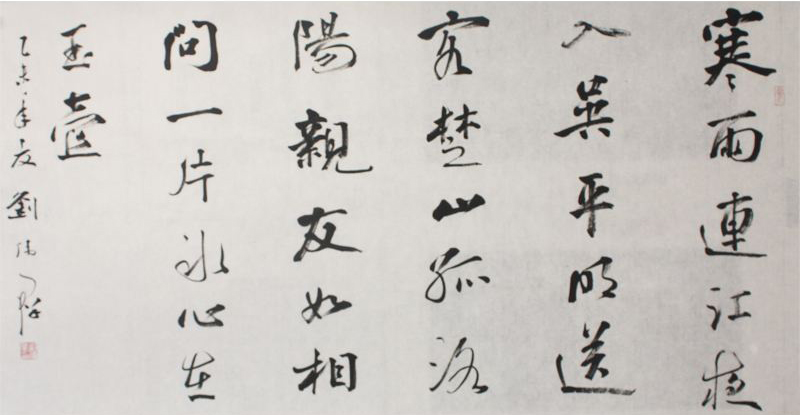 寒雨連江夜
入吳平明送
客楚山孤洛
陽親友如相
問一片冰心在
玉壺
乙未年夏劉